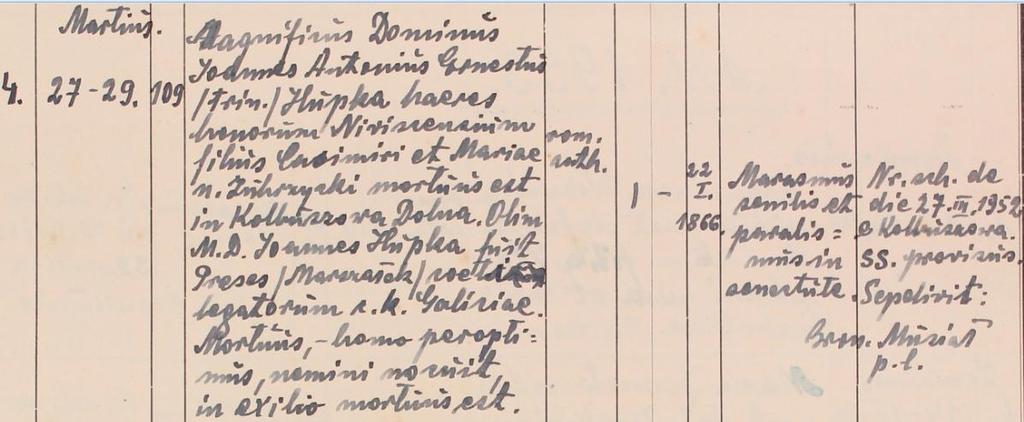 Martius.
4. 27-29. 109
Magnificus Dominus
Joannes Antonius Ernestus
/trin./ Hupka haeres
bonorum Niviscensium
filius Casimiri et Mariae
n. Zuhrzycki mortuus est
in Kolbuszowa Dolna. Olim
M.D. Joannes Hupka fuit
Preses /Marszałek/
legatorum c.k. Galiciae.
Mortuus, - homo peropti=
mus, nemini nocuit,
in exilio mortuus est.
rom.
cath.
1 -
22
I.
1866.
Marasmus
senilis et
paralis=
mus in
senectute.
Nr. sch. de
die 27.III.1952
e Kolbuszowa.
SS. provisus.
Sepelivit:
Bron. Musiał
p.l.